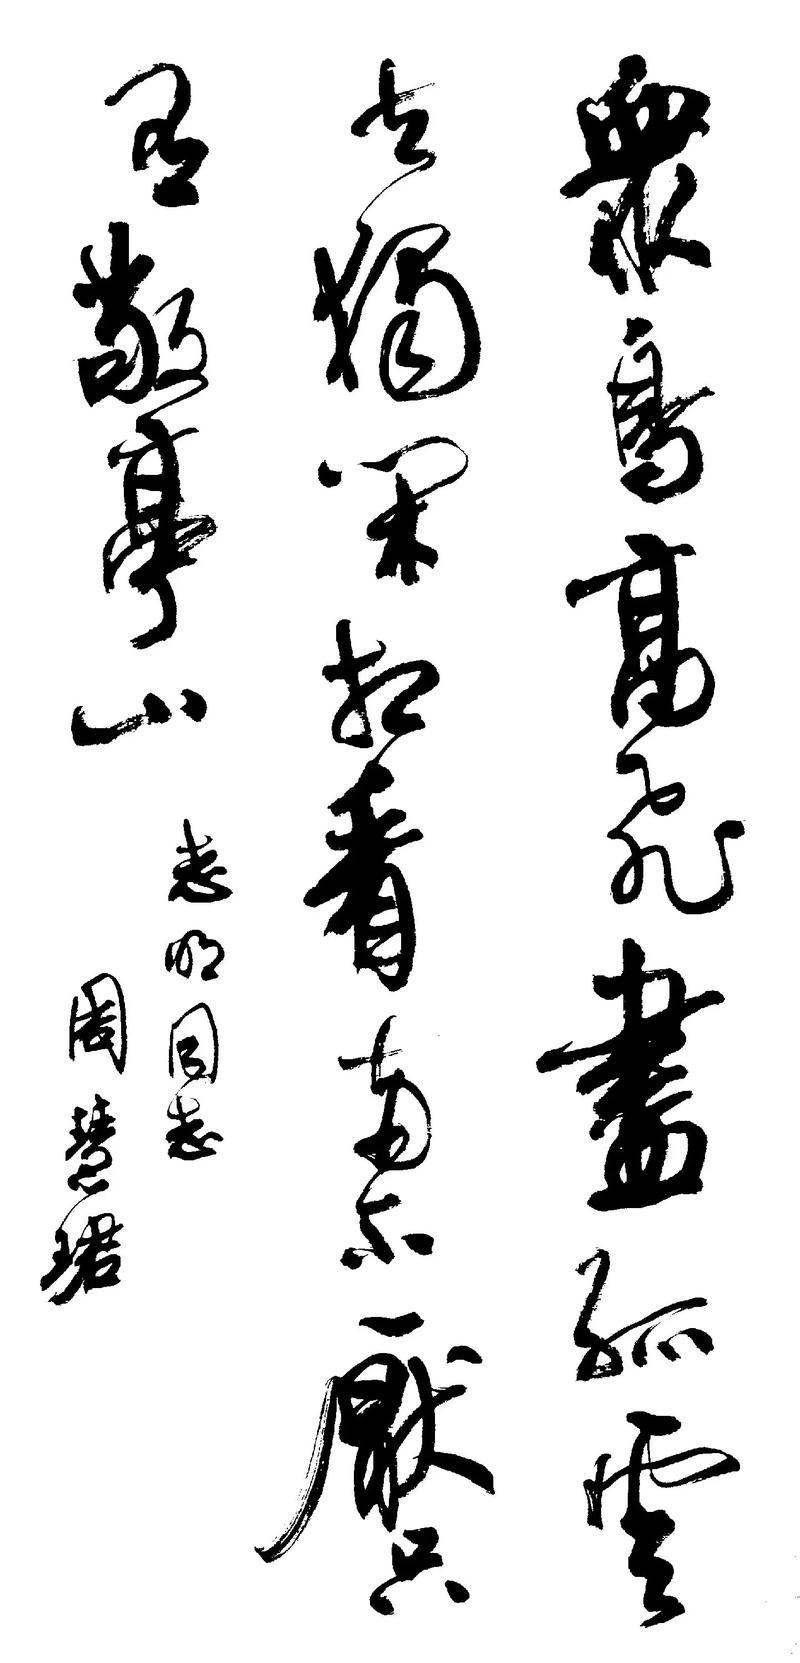 衆鳥高飛盡孤雲
去獨閑相看兩不厭只
有敬亭山
志明同志
周慧珺